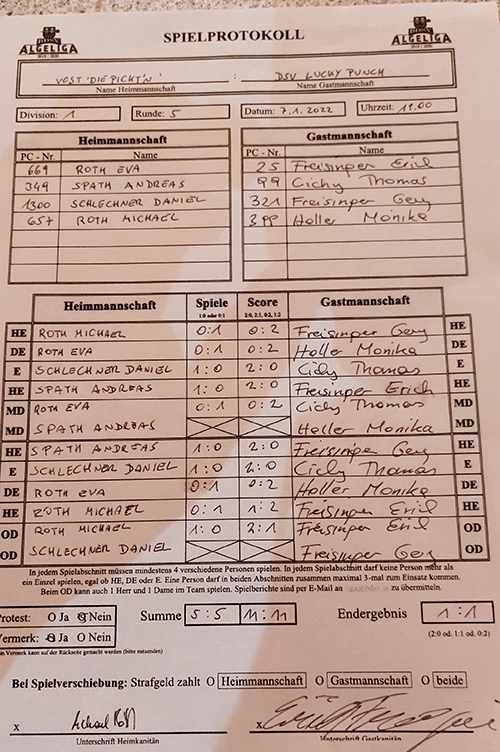 ALGELIGA
SPIELPROTOKOLL
ALGELIGA
VOST 'DIE PICKT'N' : DSV LUCKY PUNCH
Name Heimmannschaft Name Gastmannschaft
Division: 1 Runde: 5 Datum: 7.1.2022 Uhrzeit: 19.00
Heimmannschaft Gastmannschaft
PC - Nr. Name PC - Nr. Name
669 ROTH EVA 25 Freisinger Erich
349 SPATH ANDREAS 99 Cichy Thomas
1300 SCHLECHNER DANIEL 321 Freisinger Gery
657 ROTH MICHAEL 399 Holler Monika
Heimmannschaft Spiele Score Gastmannschaft
1:0 oder 0:1 2:0, 2:1, 0:2, 1:2
HE ROTH MICHAEL 0:1 0:2 Freisinger Gery HE
DE ROTH EVA 0:1 0:2 Holler Monika DE
E SCHLECHNER DANIEL 1:0 2:0 Cichy Thomas E
HE SPATH ANDREAS 1:0 2:0 Freisinger Erich HE
MD ROTH EVA 0:1 0:2 Cichy Thomas MD
MD SPATH ANDREAS Holler Monika MD
HE SPATH ANDREAS 1:0 2:0 Freisinger Gery HE
E SCHLECHNER DANIEL 1:0 2:0 Cichy Thomas E
DE ROTH EVA 0:1 0:2 Holler Monika DE
HE ROTH MICHAEL 0:1 1:2 Freisinger Erich HE
OD ROTH MICHAEL 1:0 2:1 Freisinger Erich OD
OD SCHLECHNER DANIEL Freisinger Gery OD
In jedem Spielabschnitt müssen mindestens 4 verschiedene Personen spielen. In jedem Spielabschnitt darf keine Person mehr als
ein Einzel spielen, egal ob HE, DE oder E. Eine Person darf in beiden Abschnitten zusammen maximal 3-mal zum Einsatz kommen.
Beim OD kann auch 1 Herr und 1 Dame im Team spielen. Spielberichte sind per E-Mail an zu übermitteln.
Protest: O Ja O Nein Summe 5:5 11:11 Endergebnis 1:1
Vermerk: O Ja O Nein (2:0 od. 1:1 od. 0:2)
in Vermerk kann auf der Rückseite gemacht werden (bitte mitsenden)
Bei Spielverschiebung: Strafgeld zahlt O Heimmannschaft O Gastmannschaft O beide
x Michael Roth x
Unterschrift Heimkapitän Unterschrift Gastkapitän